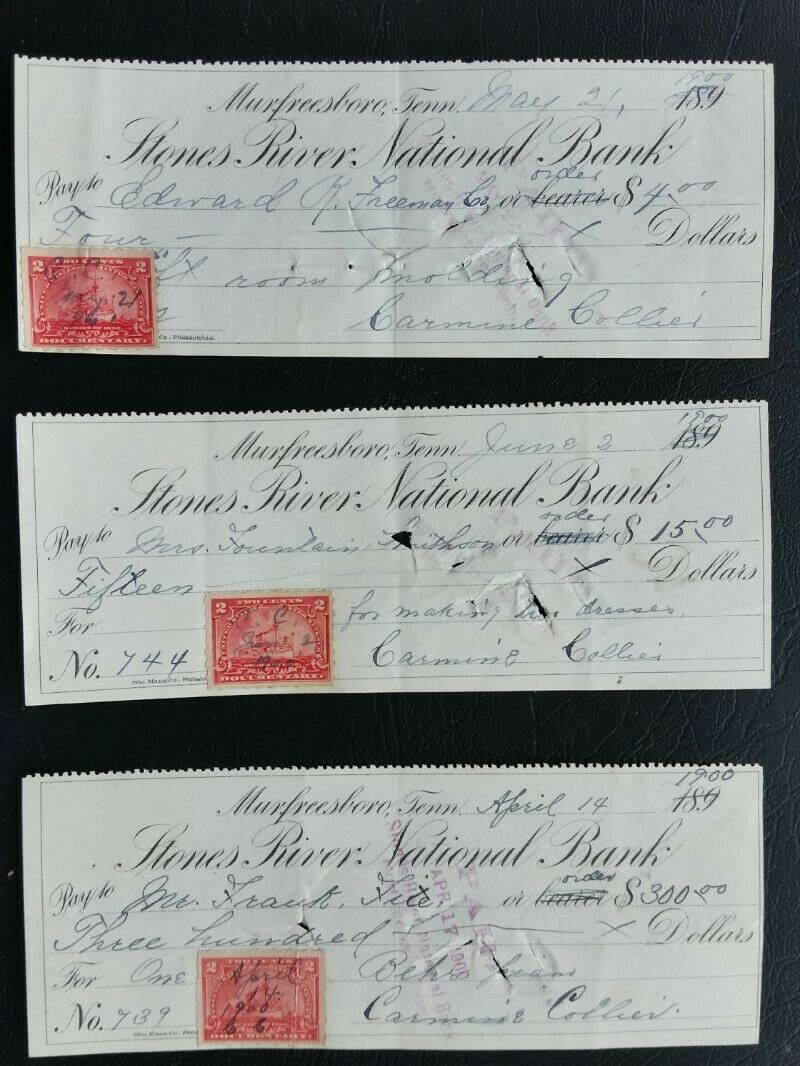 Murfreesboro, Tenn. May 21, 1900 189
Stones River National Bank
Pay to Edward R. Freeman Co, or bearer order $ 4.00
Four — x Dollars
ft room molding
Carmine Collier
Co., Philadelphia.
2 TWO CENTS 2
May 21
DOCUMENTARY.
Murfreesboro, Tenn. June 2 1900 189
Stones River National Bank
Pay to Mrs. Fountain Smithson or bearer order $ 15.00
Fifteen x Dollars
For for making two dresses,
No. 744 Carmine Collier
Wm. Mann Co., Philade
2 TWO CENTS 2
C C
June 2
DOCUMENTARY.
Murfreesboro, Tenn. April 14 1900 189
Stones River National Bank
Pay to Mr. Frank Fite. or bearer order $ 300.00
Three hundred x Dollars
For One Behr Piano
No. 739 Carmine Collier.
Wm. Mann Co., Philad
April
14
1900
C.C.
DOCUMENTARY
PAID
APR 17 1900
National Bank